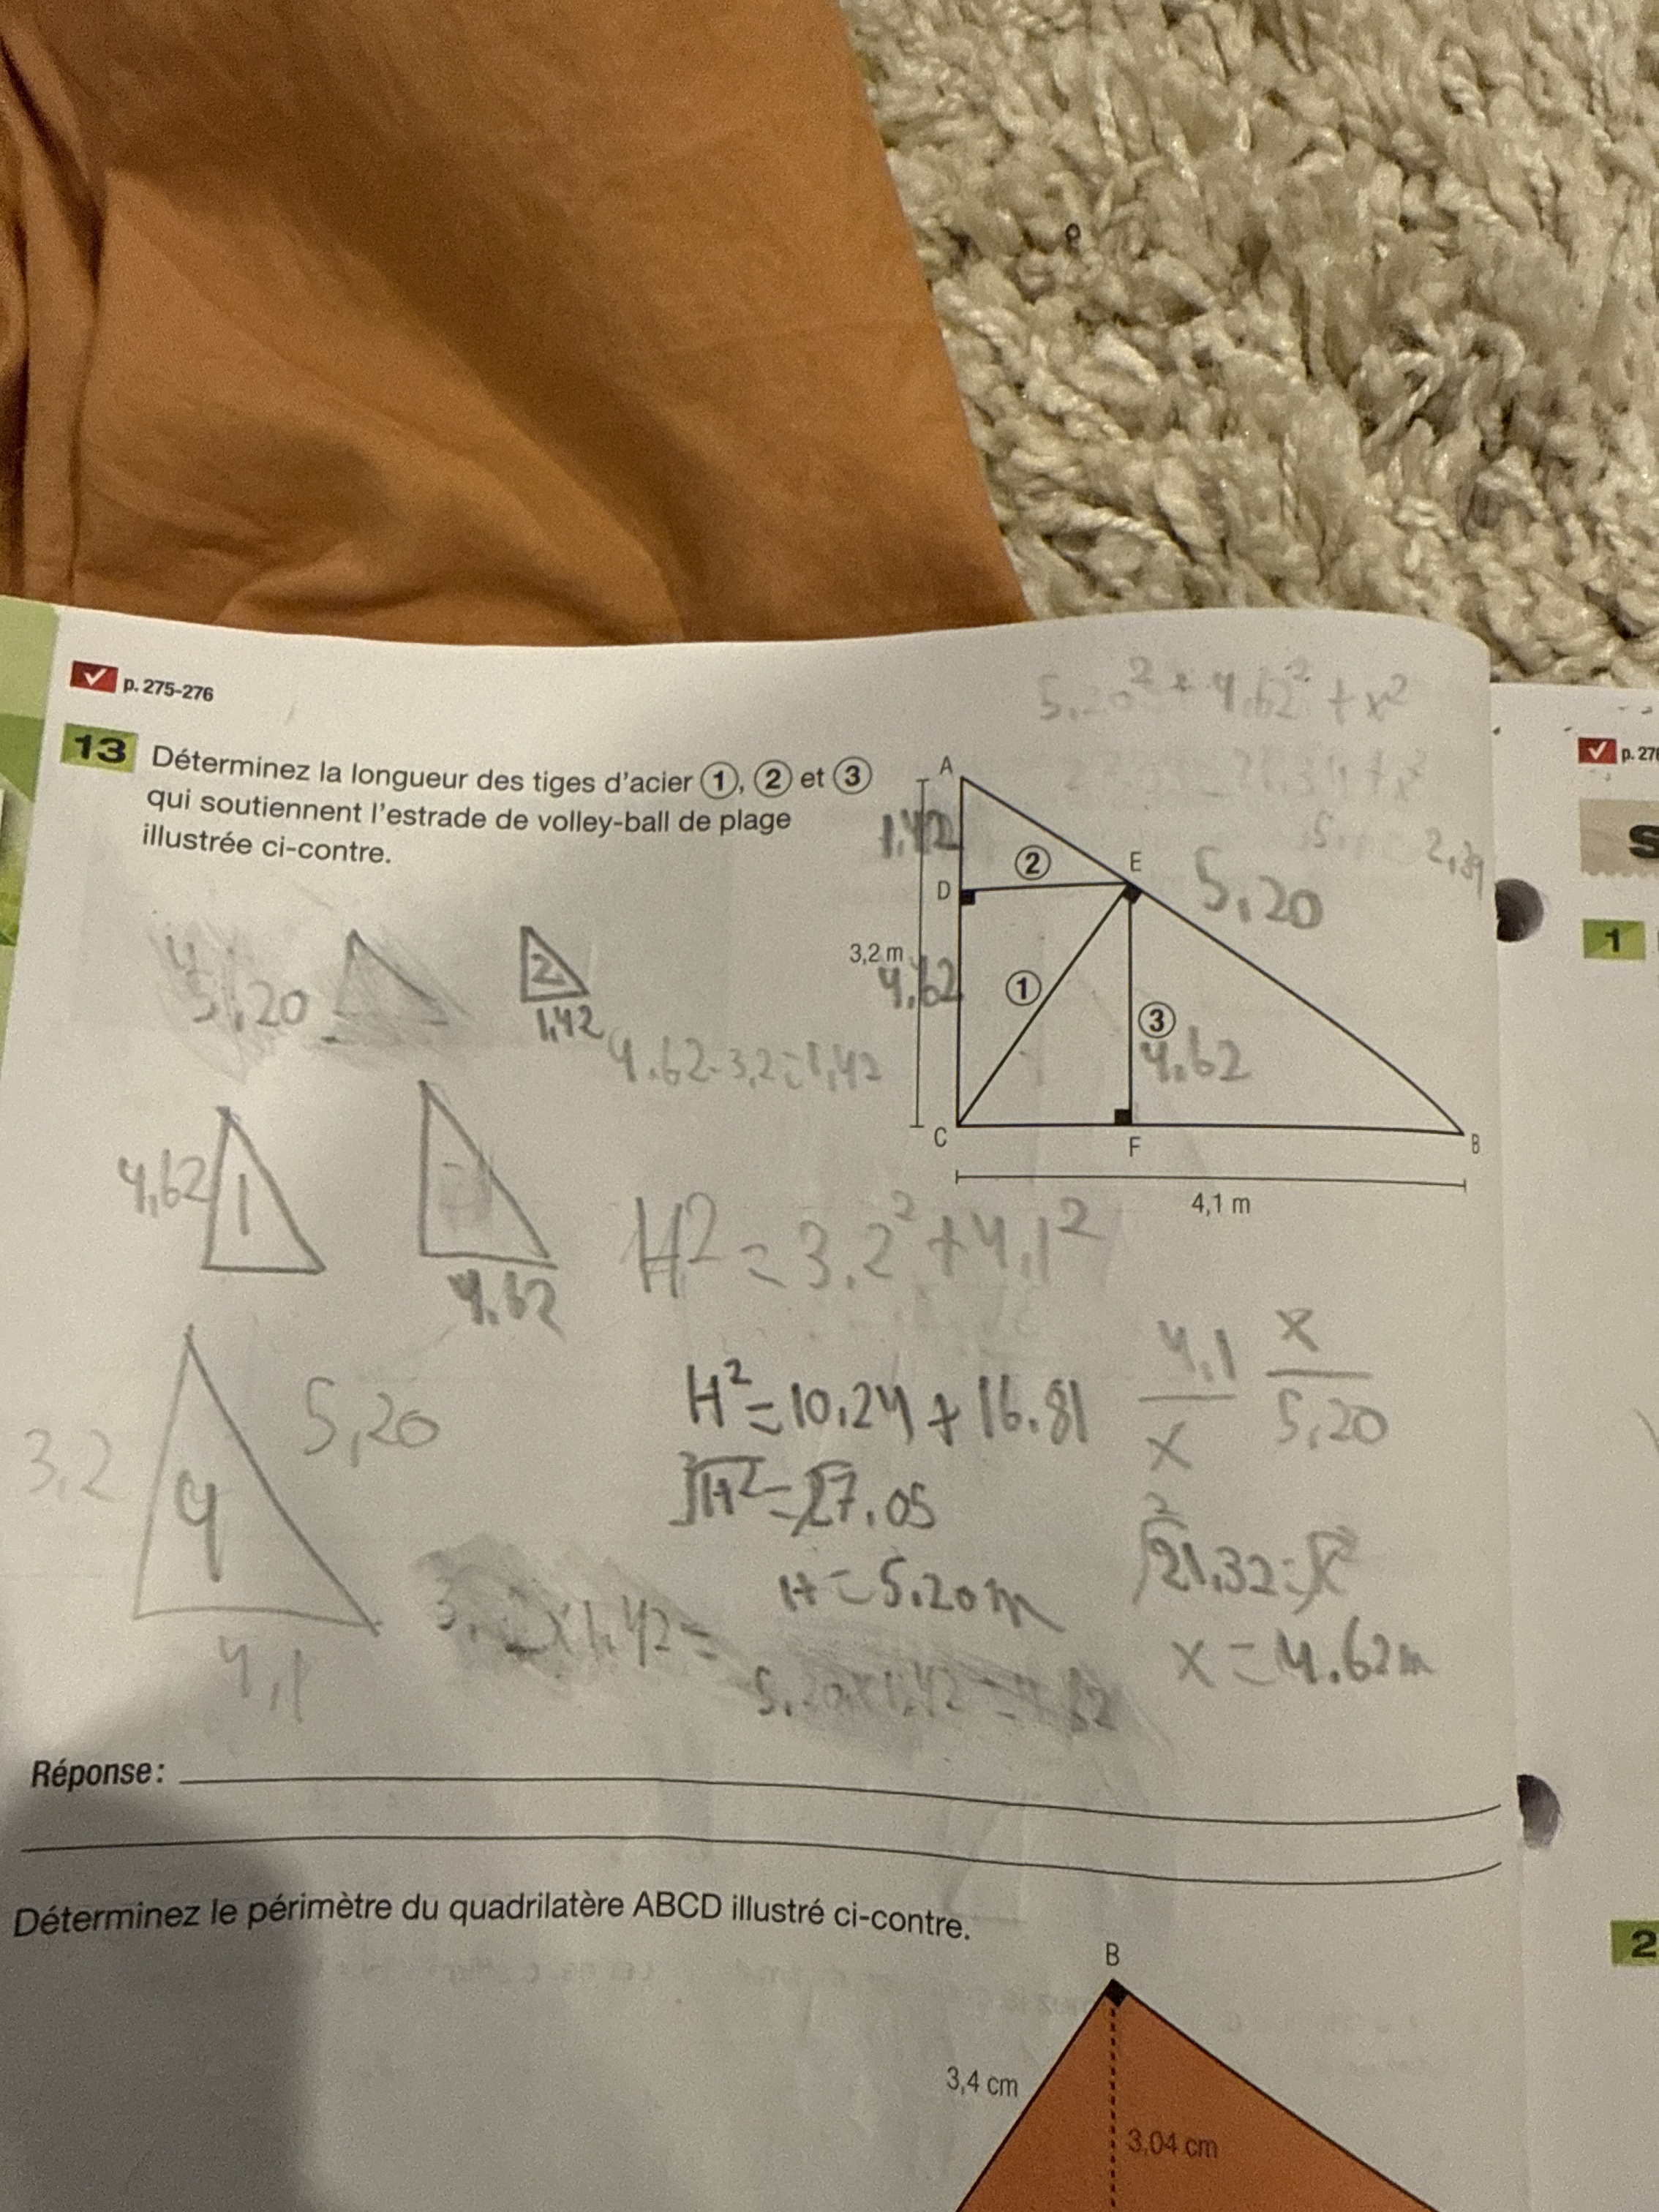 p. 275-276
13 Déterminez la longueur des tiges d'acier ①, ② et ③
qui soutiennent l'estrade de volley-ball de plage
illustrée ci-contre.
5,20² + 4,62² + x²
A
1,42
②
E
D
5,20
2,39
3,2 m
4,62
①
③
4.62
C
F
B
4,1 m
5,20
2
1,42
4.62-3,2=1,42
4,62
1
4.62
H² = 3.2² + 4,1²
3,2
4
5,20
4,1
H² = 10,24 + 16.81
√H² = √27.05
H = 5.20 m
4,1 x
x 5,20
√21,32 = √x²
x = 4.62m
x1,42 =
5,20x1,42 =
Réponse :
Déterminez le périmètre du quadrilatère ABCD illustré ci-contre.
B
3,4 cm
3,04 cm
p. 27
S
1
2